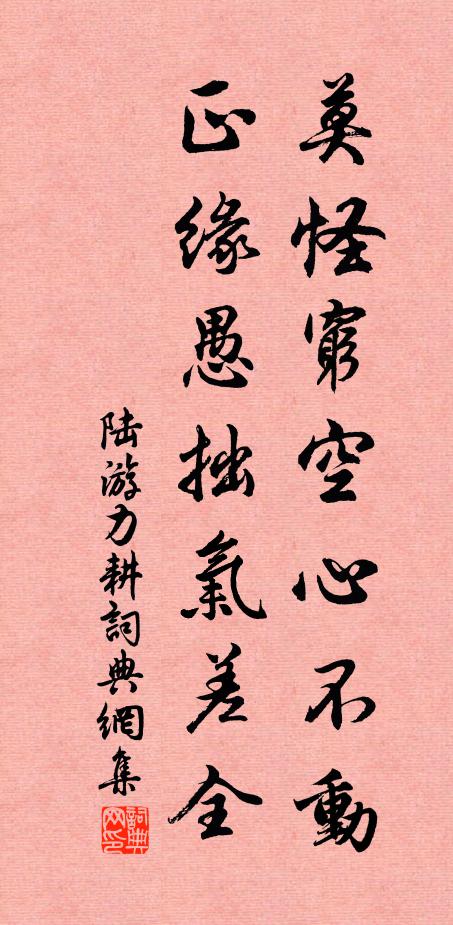 莫怪窮空心不動
正緣愚拙氣差全
陆游力耕詞典網集
詞典网印